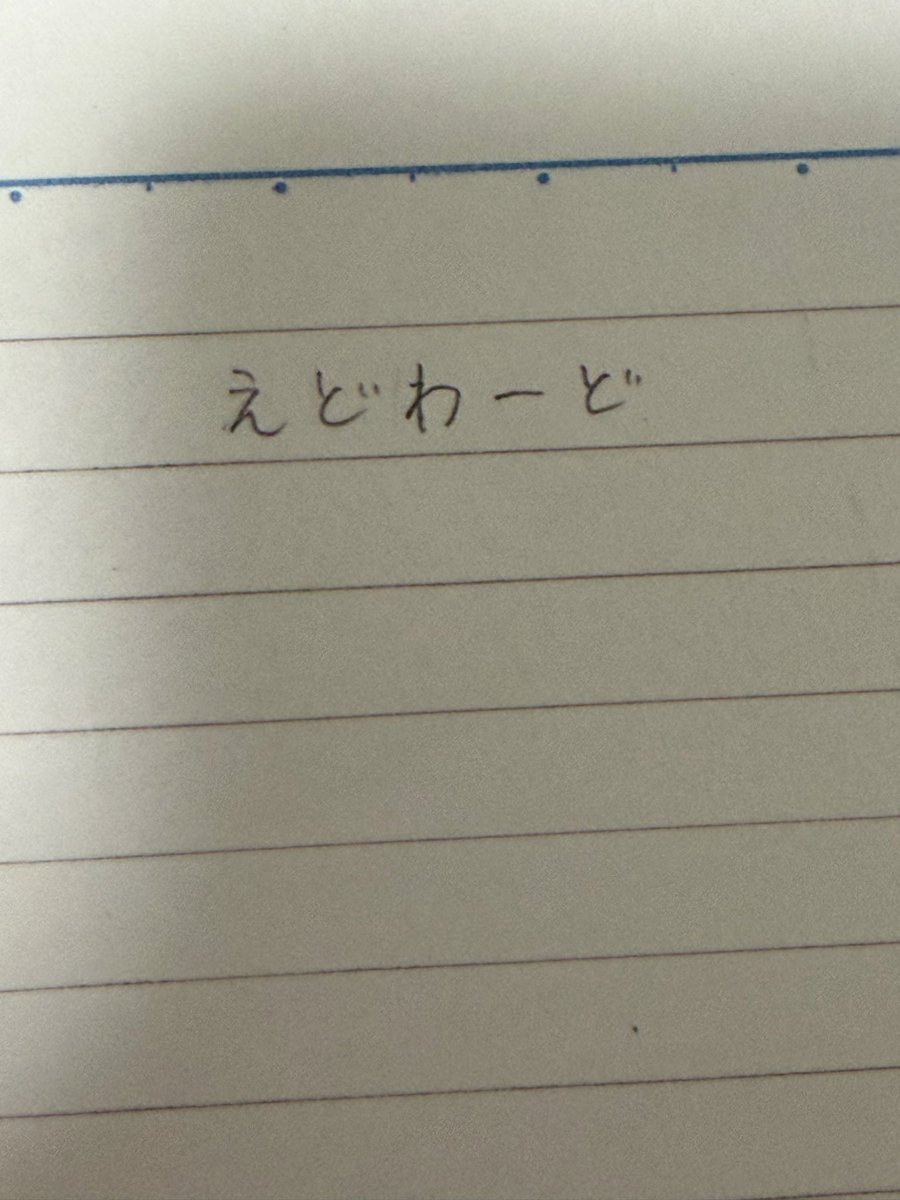 えどわーど